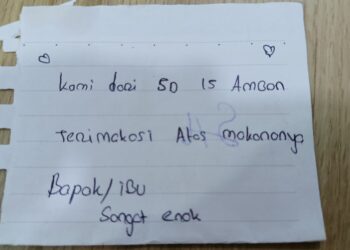 Kami dari SD 15 Ambon
Terimakasi Atas makananya
Bapak/ibu
Sangat enak